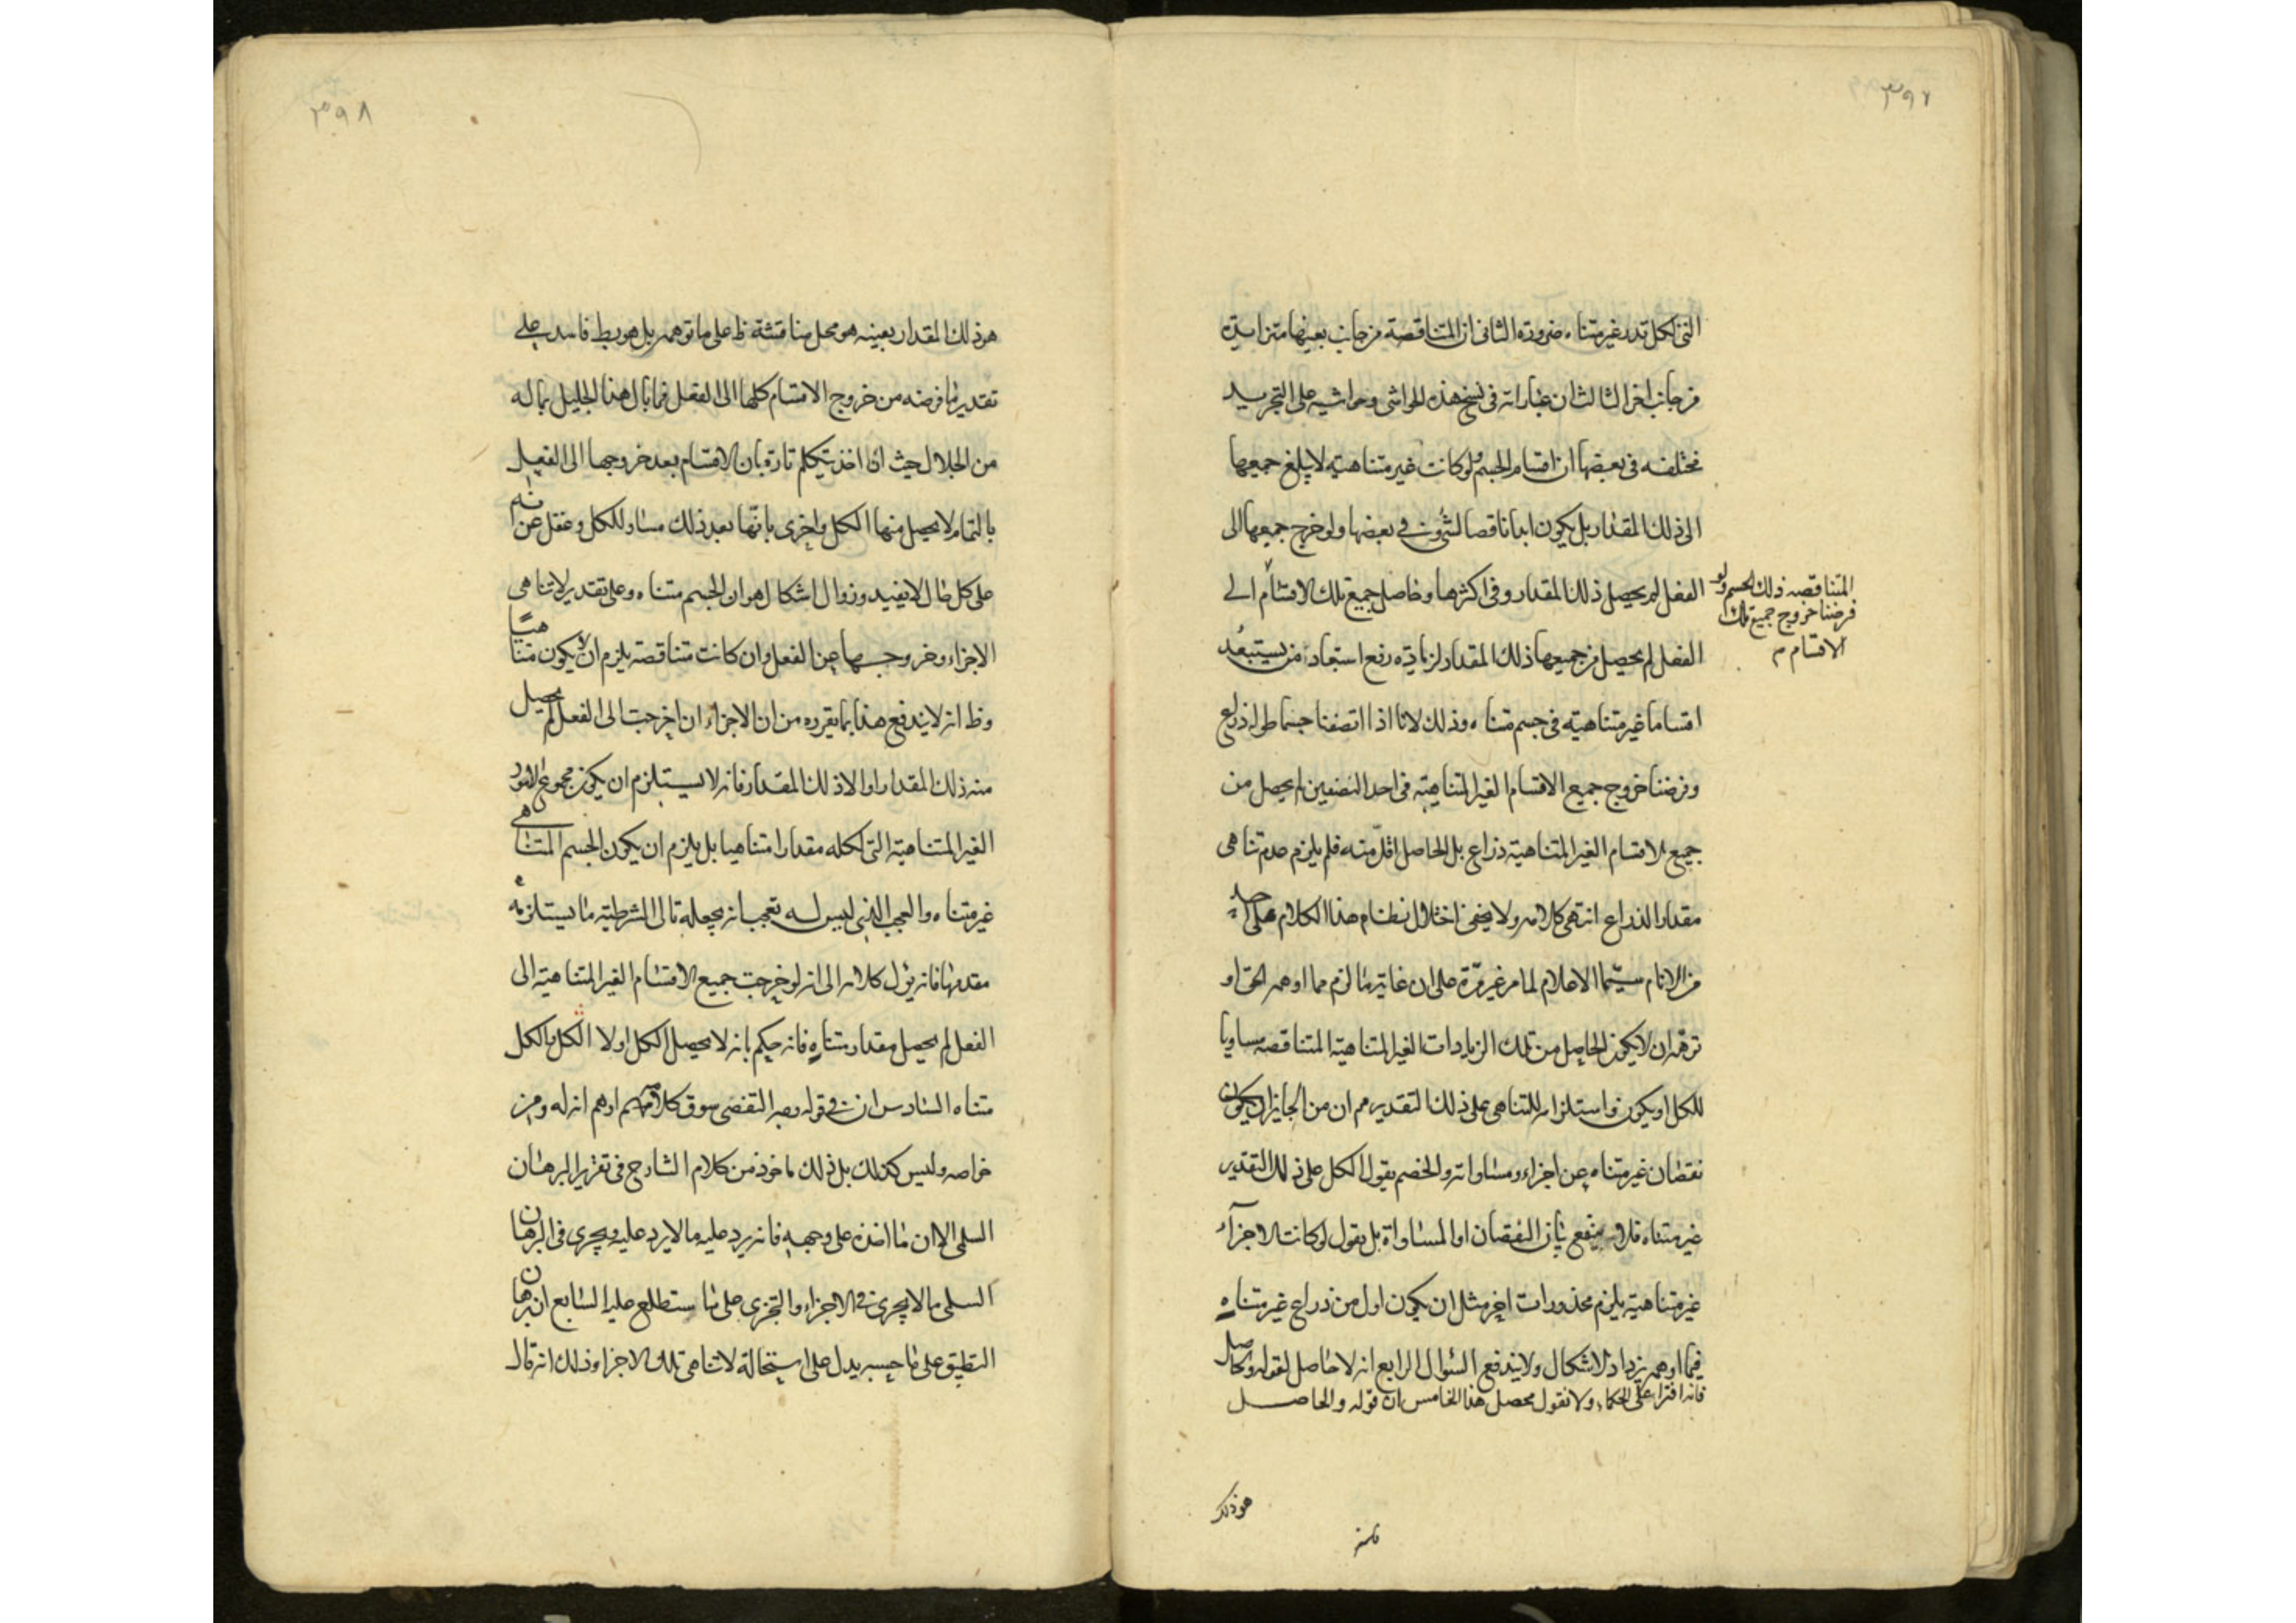 ٣٩٧
التى لكل قدر غير متناه ضرورة الثانى ان المتناقصة من جانب بعينها متزايدة
من جانب اخر الثالث ان عباراته فى نسخ هذه الحواشى وحواشيه على التجريد
مختلفه فى بعضها ان اقسام الجسم لو كانت غير متناهية لا يبلغ جميعها
الى ذلك المقدار بل يكون ابدا ناقصا لشؤ وفى بعضها ولو خرج جميعها الى
الفعل لم يحصل ذلك المقدار وفى اكثرها وحاصل جميع تلك الاقسام الى
المتناقصه ذلك الجسم ولو
فرضنا خروج جميع تلك
الاقسام م
الفعل لم يحصل من جميعها ذلك المقدار لزيادة رفع استبعاد من يستبعد
اقساما غير متناهية فى جسم متناه وذلك لانا اذا انصفنا جسما طوله ذراع
وفرضنا خروج جميع الاقسام الغير المتناهية فى احد النصفين لم يحصل من
جميع الاقسام الغير المتناهية ذراع بل الحاصل اقل منه فلم يلزم عدم تناهى
مقدار الذراع انتهى كلامه ولا يخفى اختلال نظام هذا الكلام على احد
من الانام سيما الاعلام لما مر غير مرة على ان غاية ما لزم مما اوهمه الحق او
توهمه ان لا يكون الحاصل من تلك الزيادات الغير المتناهية المتناقصه مساويا
للكل او يكون واستلزامه للتناهى على ذلك التقدير مم ان من الجايز ان يكون
نقصان غير متناه عن اجزاء ومساواته والخصم يقول الكل على ذلك التقدير
غير متناه فلا ينفع بيان النقصان او المساواة بل يقول لو كانت الاجزآء
غير متناهية يلزم محذورات اخر مثل ان يكون اول من ذراع غير متناه
فيما اوهمه يزداد الاشكال ولا يندفع السؤال الرابع انه لا حاصل لقوله والحاصل
فانه افترا على الحكماء ولا نقول محصل هذا الخامس ان قوله والحاصل
هو ذلك
٣٩٨
هو ذلك المقدار بعينه هو محل مناقشة ظ على ما توهمه بل هو بط فاسد على
تقدير ما فرضه من خروج الاقسام كلها الى الفعل فما بال هذا الجليل بما له
من الجلال حيث انه اخذ يتكلم تارة بان الاقسام بعد خروجها الى الفعل
بالتمام لا يحصل منها الكل واخرى بانها بعد ذلك مساو للكل وغفل عن انه
على كل حال لا يفيد وزوال اشكال هو ان الجسم متناه وعلى تقدير لا تناهى
الاجزاء وخروجها عن الفعل وان كانت متناقصة يلزم ان لا يكون متناهيا
وظ انه لا يندفع هذا بما يقرره من ان الاجزاء ان اخرجت الى الفعل لم يحصل
منه ذلك المقدار او الا ذلك المقدار فانه لا يستلزم ان يكون مجموع الامور
الغير المتناهية التى لكله مقدارا متناهيا بل يلزم ان يكون الجسم المتناهى
غير متناه والعجب الذى ليس له تعجب انه يجعله تالى الشرطية ما يستلزمه
مقدمها فانه يؤل كلامه الى انه لو خرجت جميع الاقسام الغير المتناهية الى
الفعل لم يحصل مقدار متناه فانه حكم بانه لا يحصل الكل اولا الكل والكل
متناه السادس ان فى قوله وجه التفصى سوق كلامهم اوهم انه له ومن
خواصه وليس كذلك بل ذلك ماخوذ من كلام الشارح فى تقرير البرهان
السلمى الا ان ما اخذه على وجهه فانه يرد عليه ما لا يرد عليه ويجرى فى البرهان
السلمى ما لا يجرى فى الاجزاء والتجزى على ما ستطلع عليه السابع ان برهان
التطبيق على ما حسبه يدل على استحالة لا تناهى تلك الاجزا وذلك انه قال